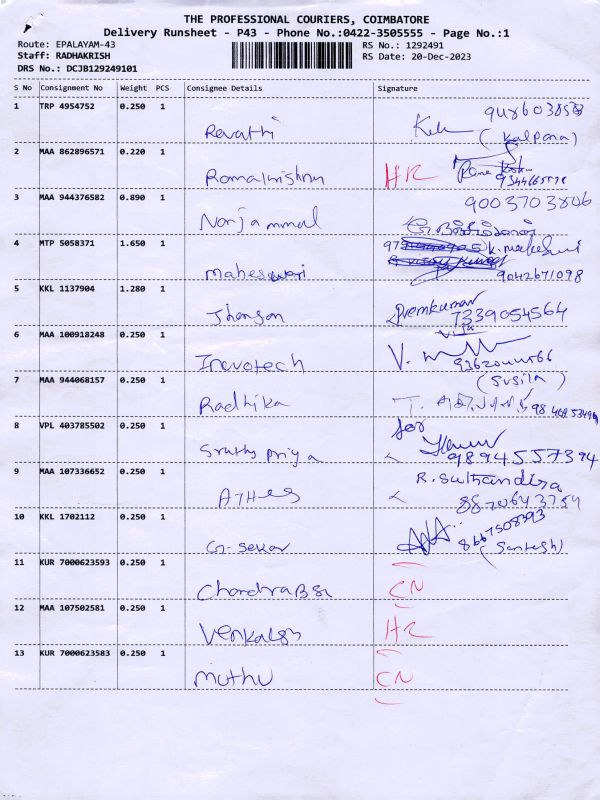 THE PROFESSIONAL COURIERS, COIMBATORE
Delivery Runsheet - P43 - Phone No.:0422-3505555 - Page No.:1
Route: EPALAYAM-43
RS No.: 1292491
Staff: RADHAKRISH
RS Date: 20-Dec-2023
DRS No.: DCJB129249101
S No Consignment No Weight PCS Consignee Details Signature
1 TRP 4954752 0.250 1
Revathi
(Kalpana)
2 MAA 862896571 0.220 1
HR
3 MAA 944376582 0.890 1
9003703806
4 MTP 5058371 1.650 1
9042671098
Maheswari
5 KKL 1137904 1.280 1
Premkumar
Jhonson 7339054564
6 MAA 100918248 0.250 1
Inovotech
7 MAA 944068157 0.250 1
(Susila)
Radhika
8 VPL 403785502 0.250 1
for
9894557394
9 MAA 107336652 0.250 1
10 KKL 1702112 0.250 1
8667508393
G. Sekar (Santosh)
11 KUR 7000623593 0.250 1
CN
12 MAA 107502581 0.250 1
HR
13 KUR 7000623583 0.250 1
Muthu CN